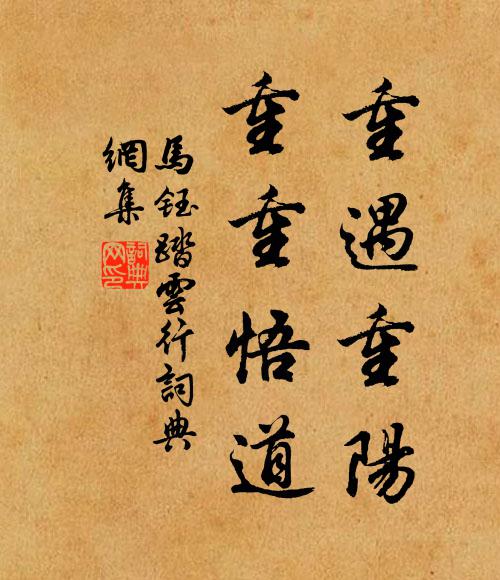 重遇重陽
重重悟道
馬鈺踏雲行詞典
網集
詞典網印